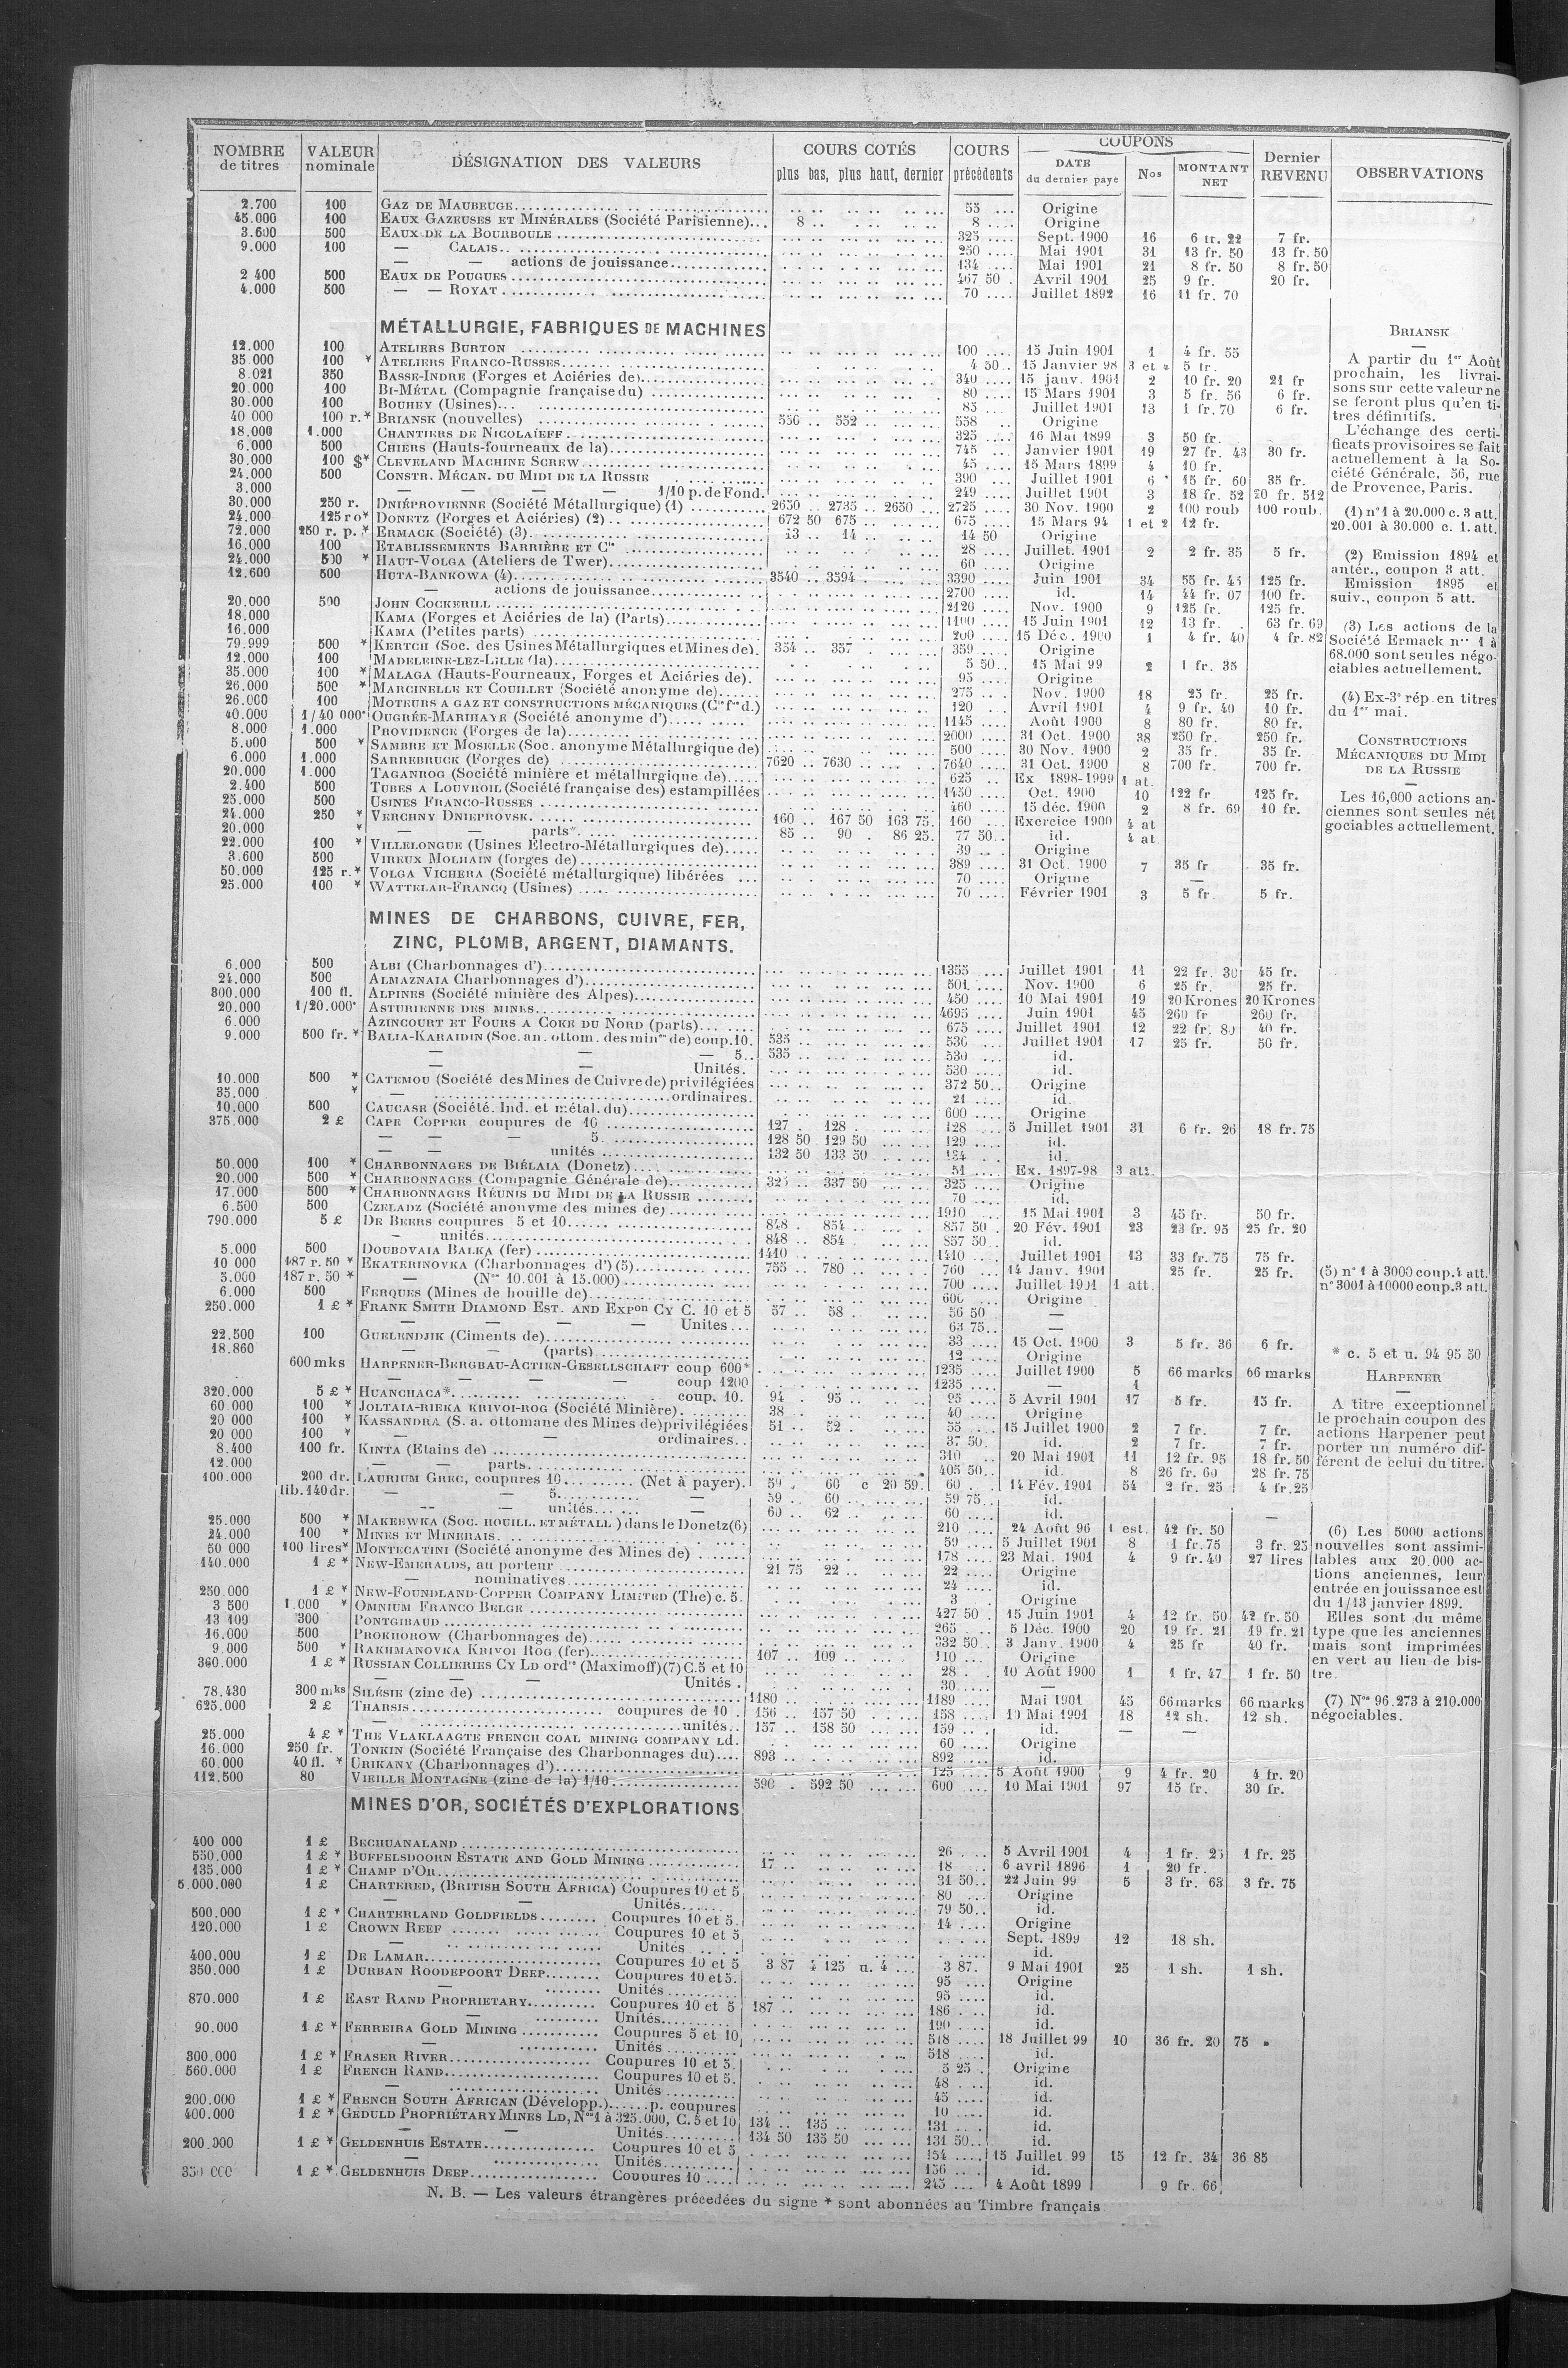 NOMBRE de titres | VALEUR nominale | DÉSIGNATION DES VALEURS | COURS COTÉS plus bas, plus haut, dernier | COURS précédents | COUPONS DATE du dernier paye | Nos | MONTANT NET | Dernier REVENU | OBSERVATIONS
2.700 100 GAZ DE MAUBEUGE 55 Origine
45.000 100 EAUX GAZEUSES ET MINÉRALES (Société Parisienne) 8 .. 8 Origine
3.600 500 EAUX DE LA BOURBOULE 325 Sept. 1900 16 6 fr. 22 7 fr.
9.000 100 — CALAIS 250 Mai 1901 31 13 fr. 50 13 fr. 50
— — actions de jouissance 134 Mai 1901 21 8 fr. 50 8 fr. 50
2 400 500 EAUX DE POUGUES 467 50 Avril 1901 25 9 fr. 20 fr.
4.000 500 — — ROYAT 70 Juillet 1892 16 11 fr. 70
MÉTALLURGIE, FABRIQUES DE MACHINES
12.000 100 ATELIERS BURTON 100 15 Juin 1901 1 4 fr. 55
35 000 100 * ATELIERS FRANCO-RUSSES 4 50 15 Janvier 98 3 et 5 fr.
8.021 350 BASSE-INDRE (Forges et Aciéries de) 340 15 janv. 1901 2 10 fr. 20 21 fr
20.000 100 BI-MÉTAL (Compagnie française du) 80 15 Mars 1901 3 5 fr. 56 6 fr.
30.000 100 BOUHEY (Usines) 85 Juillet 1901 13 1 fr. 70 6 fr.
40 000 100 r.* BRIANSK (nouvelles) 550 .. 552 558 Origine
18.000 1.000 CHANTIERS DE NICOLAÏEFF 325 16 Mai 1899 3 50 fr.
6.000 500 CHIERS (Hauts-fourneaux de la) 745 Janvier 1901 19 27 fr. 43 30 fr.
30.000 100 $* CLEVELAND MACHINE SCREW 45 15 Mars 1899 4 10 fr.
24.000 500 CONSTR. MÉCAN. DU MIDI DE LA RUSSIE 390 Juillet 1901 6 15 fr. 60 35 fr.
3.000 — — — — 1/10 p. de Fond. 249 Juillet 1901 3 18 fr. 52 20 fr. 512
30.000 250 r. DNIÉPROVIENNE (Société Métallurgique) (1) 2650 .. 2735 .. 2650 2725 30 Nov. 1900 2 100 roub 100 roub.
24.000 125 ro* DONETZ (Forges et Aciéries) (2) 672 50 675 675 15 Mars 94 1 et 2 12 fr.
72.000 250 r. p. * ERMACK (Société) (3) 13 .. 14 14 50 Origine
16.000 100 ETABLISSEMENTS BARRIÈRE ET Cie 28 Juillet. 1901 2 2 fr. 35 5 fr.
24.000 500 * HAUT-VOLGA (Ateliers de Twer) 60 Origine
12.600 500 HUTA-BANKOWA (4) 3540 .. 3594 3390 Juin 1901 34 55 fr. 45 125 fr.
— actions de jouissance 2700 id. 14 44 fr. 07 100 fr.
20.000 500 JOHN COCKERILL 2120 Nov. 1900 9 125 fr. 125 fr.
18.000 KAMA (Forges et Aciéries de la) (Parts) 1100 15 Juin 1901 12 13 fr. 63 fr. 69
16.000 KAMA (Petites parts) 200 15 Déc. 1900 1 4 fr. 40 4 fr. 82
79.999 500 * KERTCH (Soc. des Usines Métallurgiques et Mines de) 354 .. 357 359 Origine
12.000 100 MADELEINE-LEZ-LILLE (la) 5 50 15 Mai 99 2 1 fr. 35
35.000 100 * MALAGA (Hauts-Fourneaux, Forges et Aciéries de) 95 Origine
26.000 500 * MARCINELLE ET COUILLET (Société anonyme de) 275 Nov. 1900 18 25 fr. 25 fr.
26.000 100 MOTEURS A GAZ ET CONSTRUCTIONS MÉCANIQUES (Cie fse d.) 120 Avril 1901 4 9 fr. 40 10 fr.
40.000 1/40 000e OUGRÉE-MARIHAYE (Société anonyme d') 1145 Août 1900 8 80 fr. 80 fr.
8.000 1.000 PROVIDENCE (Forges de la) 2000 31 Oct. 1900 38 250 fr. 250 fr.
5.000 500 * SAMBRE ET MOSELLE (Soc. anonyme Métallurgique de) 500 30 Nov. 1900 2 35 fr. 35 fr.
6.000 1.000 SARREBRUCK (Forges de) 7620 .. 7630 7640 31 Oct. 1900 8 700 fr. 700 fr.
20.000 1.000 TAGANROG (Société minière et métallurgique de) 625 Ex 1898-1999 1 at.
2.400 500 TUBES A LOUVROIL (Société française des) estampillées 1450 Oct. 1900 10 122 fr 125 fr.
25.000 500 USINES FRANCO-RUSSES 460 15 déc. 1900 2 8 fr. 69 10 fr.
24.000 250 * VERCHNY DNIEPROVSK 160 .. 167 50 163 75 160 Exercice 1900 4 at
20.000 * — — parts 85 .. 90 . 86 25 77 50 id. 4 at
22.000 100 * VILLELONGUE (Usines Electro-Métallurgiques de) 39 Origine
3.600 500 VIREUX MOLHAIN (forges de) 389 31 Oct. 1900 7 35 fr 35 fr.
50.000 125 r.* VOLGA VICHERA (Société métallurgique) libérées 70 Origine —
25.000 100 * WATTELAR-FRANCQ (Usines) 70 Février 1901 3 5 fr 5 fr.
MINES DE CHARBONS, CUIVRE, FER,
ZINC, PLOMB, ARGENT, DIAMANTS.
6.000 500 ALBI (Charbonnages d') 1355 Juillet 1901 11 22 fr. 30 45 fr.
24.000 500 ALMAZNAIA Charbonnages d') 501 Nov. 1900 6 25 fr. 25 fr.
300.000 100 fl. ALPINES (Société minière des Alpes) 450 10 Mai 1901 19 20 Krones 20 Krones
20.000 1/20.000e ASTURIENNE DES MINES 4695 Juin 1901 45 260 fr 260 fr.
6.000 AZINCOURT ET FOURS A COKE DU NORD (parts) 675 Juillet 1901 12 22 fr. 80 40 fr.
9.000 500 fr. * BALIA-KARAIDIN (Soc. an. ottom. des mines de) coup. 10. 535 536 Juillet 1901 17 25 fr. 50 fr.
— — — 5. 535 530 id.
— — Unités. 530 id.
10.000 500 * CATEMOU (Société des Mines de Cuivre de) privilégiées 372 50 Origine
35.000 * — ordinaires. 21 id.
10.000 500 CAUCASE (Société. Ind. et métal. du) 600 Origine
375.000 2 £ CAPE COPPER coupures de 10 127 . 128 128 5 Juillet 1901 31 6 fr. 26 18 fr. 75
— — — 5 128 50 129 50 129 id.
— — unités 132 50 133 50 id.
50.000 100 * CHARBONNAGES DE BIÉLAIA (Donetz) 51 Ex. 1897-98 3 att.
20.000 500 * CHARBONNAGES (Compagnie Générale de) 325 .. 337 50 325 Origine
17.000 500 * CHARBONNAGES RÉUNIS DU MIDI DE LA RUSSIE 70 id.
6.500 500 CZELADZ (Société anonyme des mines de) 1910 15 Mai 1901 3 45 fr. 50 fr.
790.000 5 £ DE BEERS coupures 5 et 10 848 . 854 857 50 20 Fév. 1901 23 23 fr. 95 25 fr. 20
— unités 848 .. 854 857 50 id.
5.000 500 DOUBOVAIA BALKA (fer) 1410 1410 Juillet 1901 13 33 fr. 75 75 fr.
10 000 187 r. 50 * EKATERINOVKA (Charbonnages d') (5) 755 .. 780 760 14 Janv. 1901 25 fr. 25 fr.
5.000 187 r. 50 * — (Nos 10.001 à 15.000) 700 Juillet 1901 1 att.
6.000 500 FERQUES (Mines de houille de) 600 Origine
250.000 1 £ * FRANK SMITH DIAMOND EST. AND EXPon CY C. 10 et 5 57 .. 58 56 50 —
— — — — Unites 63 75 —
22.500 100 GUELENDJIK (Ciments de) 33 15 Oct. 1900 3 5 fr. 36 6 fr.
18.860 — — (parts) 12 Origine
600 mks HARPENER-BERGBAU-ACTIEN-GESELLSCHAFT coup 600* 1235 Juillet 1900 5 66 marks 66 marks
— — — — coup 1200 1235 — 4
320.000 5 £ * HUANCHACA*. coup. 10. 94 . 95 95 5 Avril 1901 17 5 fr. 15 fr.
60 000 100 * JOLTAIA-RIEKA KRIVOI-ROG (Société Minière) 38 40 Origine
20 000 100 * KASSANDRA (S. a. ottomane des Mines de) privilégiées 51 .. 52 55 15 Juillet 1900 2 7 fr. 7 fr.
20 000 100 * — — ordinaires 37 50 id. 2 7 fr. 7 fr.
8.400 100 fr. KINTA (Etains de) 310 20 Mai 1901 11 12 fr. 95 18 fr. 50
12.000 — — parts 405 50 id. 8 26 fr. 60 28 fr. 75
100.000 200 dr. LAURIUM GREC, coupures 10 (Net à payer). 59 . 60 c 20 59. 60 14 Fév. 1901 54 2 fr. 25 4 fr. 25
lib. 140 dr. — — 5 — 59 .. 60 59 75 id.
— — unités — 60 .. 62 60 id. —
25.000 500 * MAKEEWKA (SOC. HOUILL. ET MÉTALL.) dans le Donetz (6) 210 24 Août 96 1 est. 42 fr. 50
24.000 100 * MINES ET MINERAIS 59 5 Juillet 1901 8 1 fr. 75 3 fr. 25
50 000 100 lires* MONTECATINI (Société anonyme des Mines de) 178 23 Mai. 1901 4 9 fr. 40 27 lires
140.000 1 £ * NEW-EMERALDS, au porteur 21 75 22 22 Origine
— nominatives 24 id.
250.000 1 £ * NEW-FOUNDLAND-COPPER COMPANY LIMITED (The) c. 5. 3 Origine
3 500 1.000 * OMNIUM FRANCO BELGE 427 50 15 Juin 1901 4 12 fr. 50 42 fr. 50
13 109 300 PONTGIBAUD 265 5 Déc. 1900 20 19 fr. 21 19 fr. 21
16.000 500 PROKHOROW (Charbonnages de) 332 50 3 Janv. 1900 4 25 fr 40 fr.
9.000 500 * RAKHMANOVKA KRIVOI ROG (fer) 107 .. 109 110 Origine
360.000 1 £ * RUSSIAN COLLIERIES CY LD ordre (Maximoff) (7) C. 5 et 10 28 10 Août 1900 1 1 fr. 47 1 fr. 50
— — Unités 30 —
78.430 300 mks SILÉSIE (zinc de) 1180 1189 Mai 1901 45 66 marks 66 marks
625.000 2 £ THARSIS coupures de 10 156 .. 157 50 158 10 Mai 1901 18 12 sh. 12 sh.
— unités 157 .. 158 50 159 id. — —
25.000 4 £ * THE VLAKLAAGTE FRENCH COAL MINING COMPANY LD. 60 Origine
16.000 250 fr. TONKIN (Société Française des Charbonnages du) 893 892 id.
60.000 40 fl. * URIKANY (Charbonnages d') 125 5 Août 1900 9 4 fr. 20 4 fr. 20
112.500 80 VIEILLE MONTAGNE (zinc de la) 1/10 590 . 592 50 600 10 Mai 1901 97 15 fr. 30 fr.
MINES D'OR, SOCIÉTÉS D'EXPLORATIONS
400 000 1 £ BECHUANALAND 26 5 Avril 1901 4 1 fr. 25 1 fr. 25
550.000 1 £ * BUFFELSDOORN ESTATE AND GOLD MINING 17 18 6 avril 1896 1 20 fr.
135.000 1 £ * CHAMP D'OR 31 50 22 Juin 99 5 3 fr. 63 3 fr. 75
5.000.000 1 £ CHARTERED, (BRITISH SOUTH AFRICA) Coupures 10 et 5 80 Origine
— — Unités 79 50 id.
500.000 1 £ * CHARTERLAND GOLDFIELDS Coupures 10 et 5. 14 Origine
120.000 1 £ CROWN REEF Coupures 10 et 5 Sept. 1899 12 18 sh.
— Unités id.
400.000 1 £ DE LAMAR Coupures 10 et 5 3 87 4 125 u. 4 3 87. 9 Mai 1901 25 1 sh. 1 sh.
350.000 1 £ DURBAN ROODEPOORT DEEP Coupures 10 et 5. 95 Origine
— Unités 95 id.
870.000 1 £ EAST RAND PROPRIETARY Coupures 10 et 5 187 186 id.
— Unités 190 id.
90.000 1 £ * FERREIRA GOLD MINING Coupures 5 et 10 518 18 Juillet 99 10 36 fr. 20 75 »
Unités 518 id.
300.000 1 £ * FRASER RIVER Coupures 10 et 5. 5 25 Origine
560.000 1 £ FRENCH RAND Coupures 10 et 5. 48 id.
— Unités 45 id.
200.000 1 £ * FRENCH SOUTH AFRICAN (Développ.) p. coupures 10 id.
400.000 1 £ * GEDULD PROPRIÉTARY MINES LD, Nos 1 à 325.000, C. 5 et 10 134 .. 135 131 id.
— — Unités 134 50 135 50 131 50 id.
200.000 1 £ * GELDENHUIS ESTATE Coupures 10 et 5 154 15 Juillet 99 15 12 fr. 34 36 85
— Unités 156 id.
350 000 1 £ * GELDENHUIS DEEP Coupures 10 245 4 Août 1899 9 fr. 66
N. B. — Les valeurs étrangères précedées du signe * sont abonnées au Timbre français
BRIANSK
—
A partir du 1er Août
prochain, les livrai-
sons sur cette valeur ne
se feront plus qu'en ti-
tres définitifs.
L'échange des certi-
ficats provisoires se fait
actuellement à la So-
ciété Générale, 56, rue
de Provence, Paris.
(1) n° 1 à 20.000 c. 3 att.
20.001 à 30.000 c. 1. att.
(2) Emission 1894 et
antér., coupon 3 att.
Emission 1895 et
suiv., coupon 5 att.
(3) Les actions de la
Société Ermack nos 1 à
68.000 sont seules négo-
ciables actuellement.
(4) Ex-3e rép. en titres
du 1er mai.
CONSTRUCTIONS
MÉCANIQUES DU MIDI
DE LA RUSSIE
—
Les 16,000 actions an-
ciennes sont seules nét
gociables actuellement.
(5) n° 1 à 3000 coup. 4 att.
n° 3001 à 10000 coup. 3 att.
* c. 5 et u. 94 95 50
HARPENER
—
A titre exceptionnel
le prochain coupon des
actions Harpener peut
porter un numéro dif-
férent de celui du titre.
(6) Les 5000 actions
nouvelles sont assimi-
lables aux 20.000 ac-
tions anciennes, leur
entrée en jouissance est
du 1/13 janvier 1899.
Elles sont du même
type que les anciennes
mais sont imprimées
en vert au lieu de bis-
tre.
(7) Nos 96.273 à 210.000
négociables.